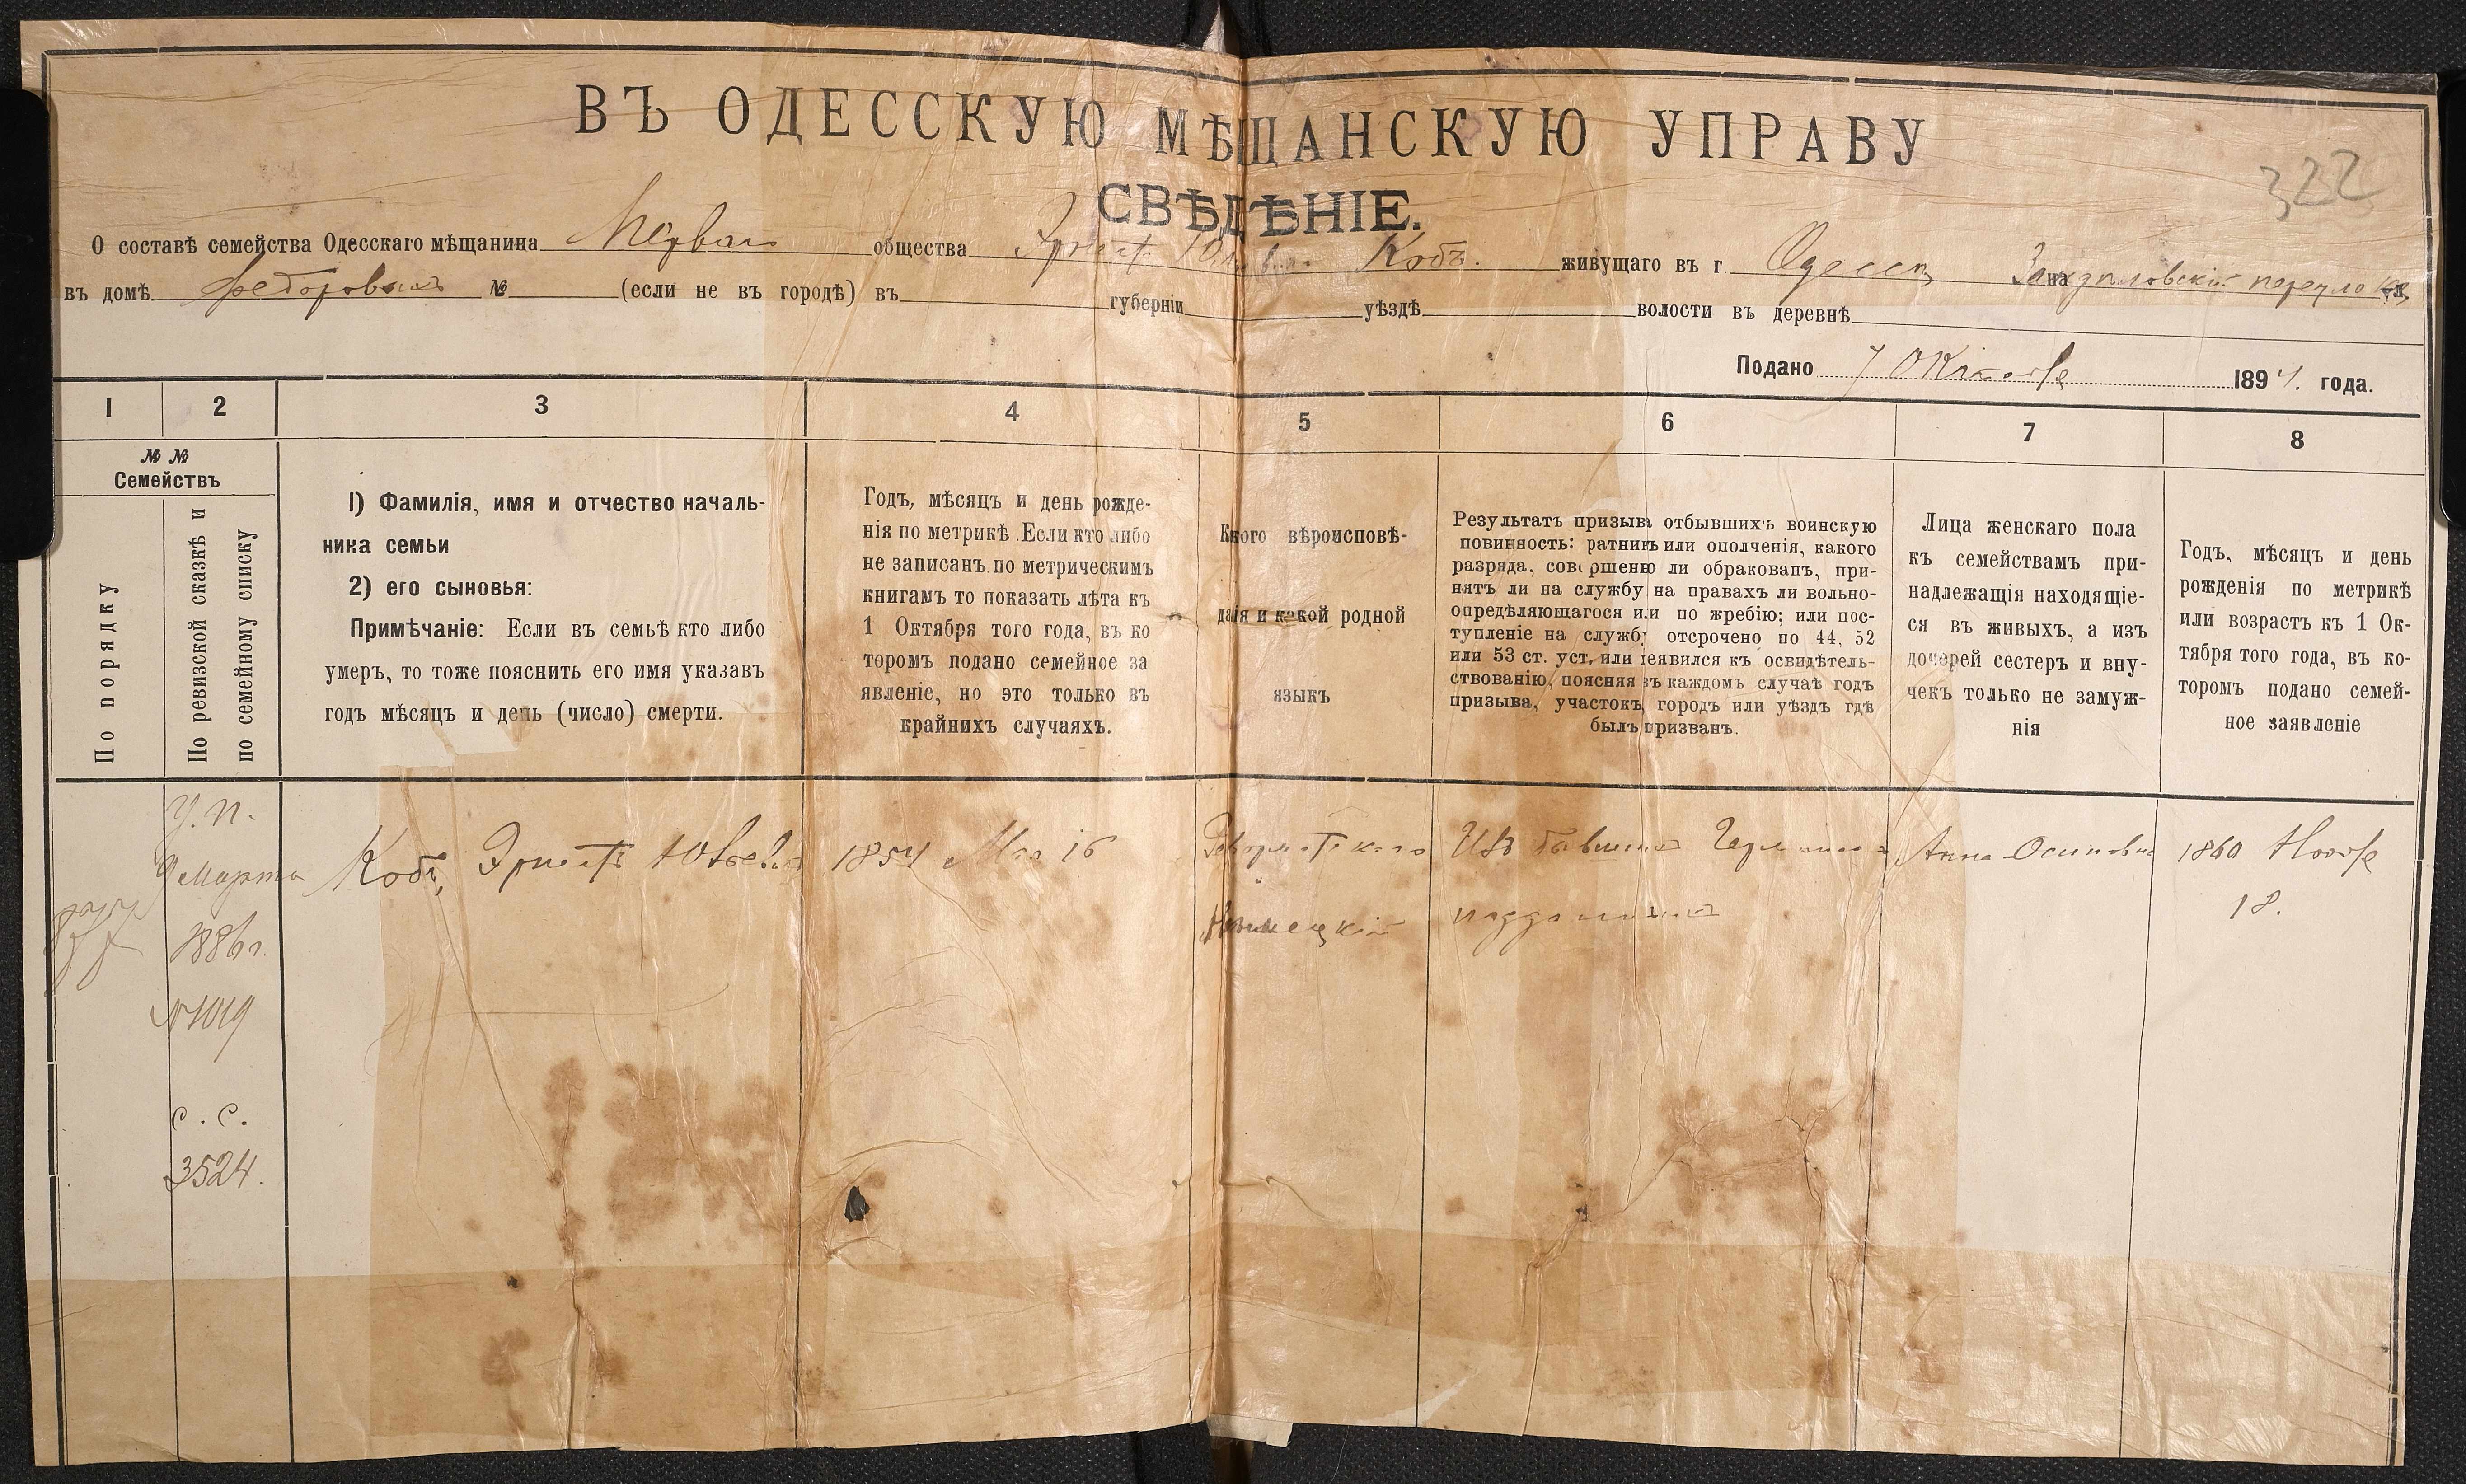 ВЪ ОДЕССКУЮ МѢЩАНСКУЮ УПРАВУ
322
СВѢДѢНІЕ.
О составѣ семейства Одесскаго мѣщанина общества Эрнст Кобъ. живущаго въ г. Одессѣ на переулкѣ
въ домѣ Федоровыхъ № (если не въ городѣ) въ губерніи уѣздѣ волости въ деревнѣ
Подано 7 Октября 1894. года.
1 2 3 4 5 6 7 8
№ №
Семействъ
По порядку
По ревизской сказкѣ и
по семейному списку
1) Фамилія, имя и отчество началь-
ника семьи
2) его сыновья:
Примѣчаніе: Если въ семьѣ кто либо
умеръ, то тоже пояснить его имя указавъ
годъ мѣсяцъ и день (число) смерти.
Годъ, мѣсяцъ и день рожде-
нія по метрикѣ. Если кто либо
не записанъ по метрическимъ
книгамъ то показать лѣта къ
1 Октября того года, въ ко
торомъ подано семейное за
явленіе, но это только въ
крайнихъ случаяхъ.
Какого вѣроисповѣ-
данія и какой родной
языкъ
Результатъ призыва отбывшихъ воинскую
повинность: ратникъ или ополченія, какого
разряда, совершенно ли обракован, при-
нятъ ли на службу на правахъ ли вольно-
опредѣляющагося или по жребію; или пос-
тупленіе на службу отсрочено по 44, 52
или 53 ст. уст. или неявился къ освидѣтель-
ствованію, поясняя въ каждомъ случаѣ годъ
призыва, участокъ, городъ или уѣздъ гдѣ
былъ призванъ.
Лица женскаго пола
къ семействамъ при-
надлежащія находящіе-
ся въ живыхъ, а изъ
дочерей сестеръ и вну-
чекъ только не замуж-
нія
Годъ, мѣсяцъ и день
рожденія по метрикѣ
или возрастъ къ 1 Ок-
тября того года, въ ко-
торомъ подано семей-
ное заявленіе
У.П.
9 Марта
1886 г.
№ 1019
с. с.
3524.
Кобъ, Эрнстъ
1854 Мая 16
Реформатскаго
Нѣмецкій
Изъ бывшихъ
подданныхъ
Анна Осиповна
1860 Ноября
18.